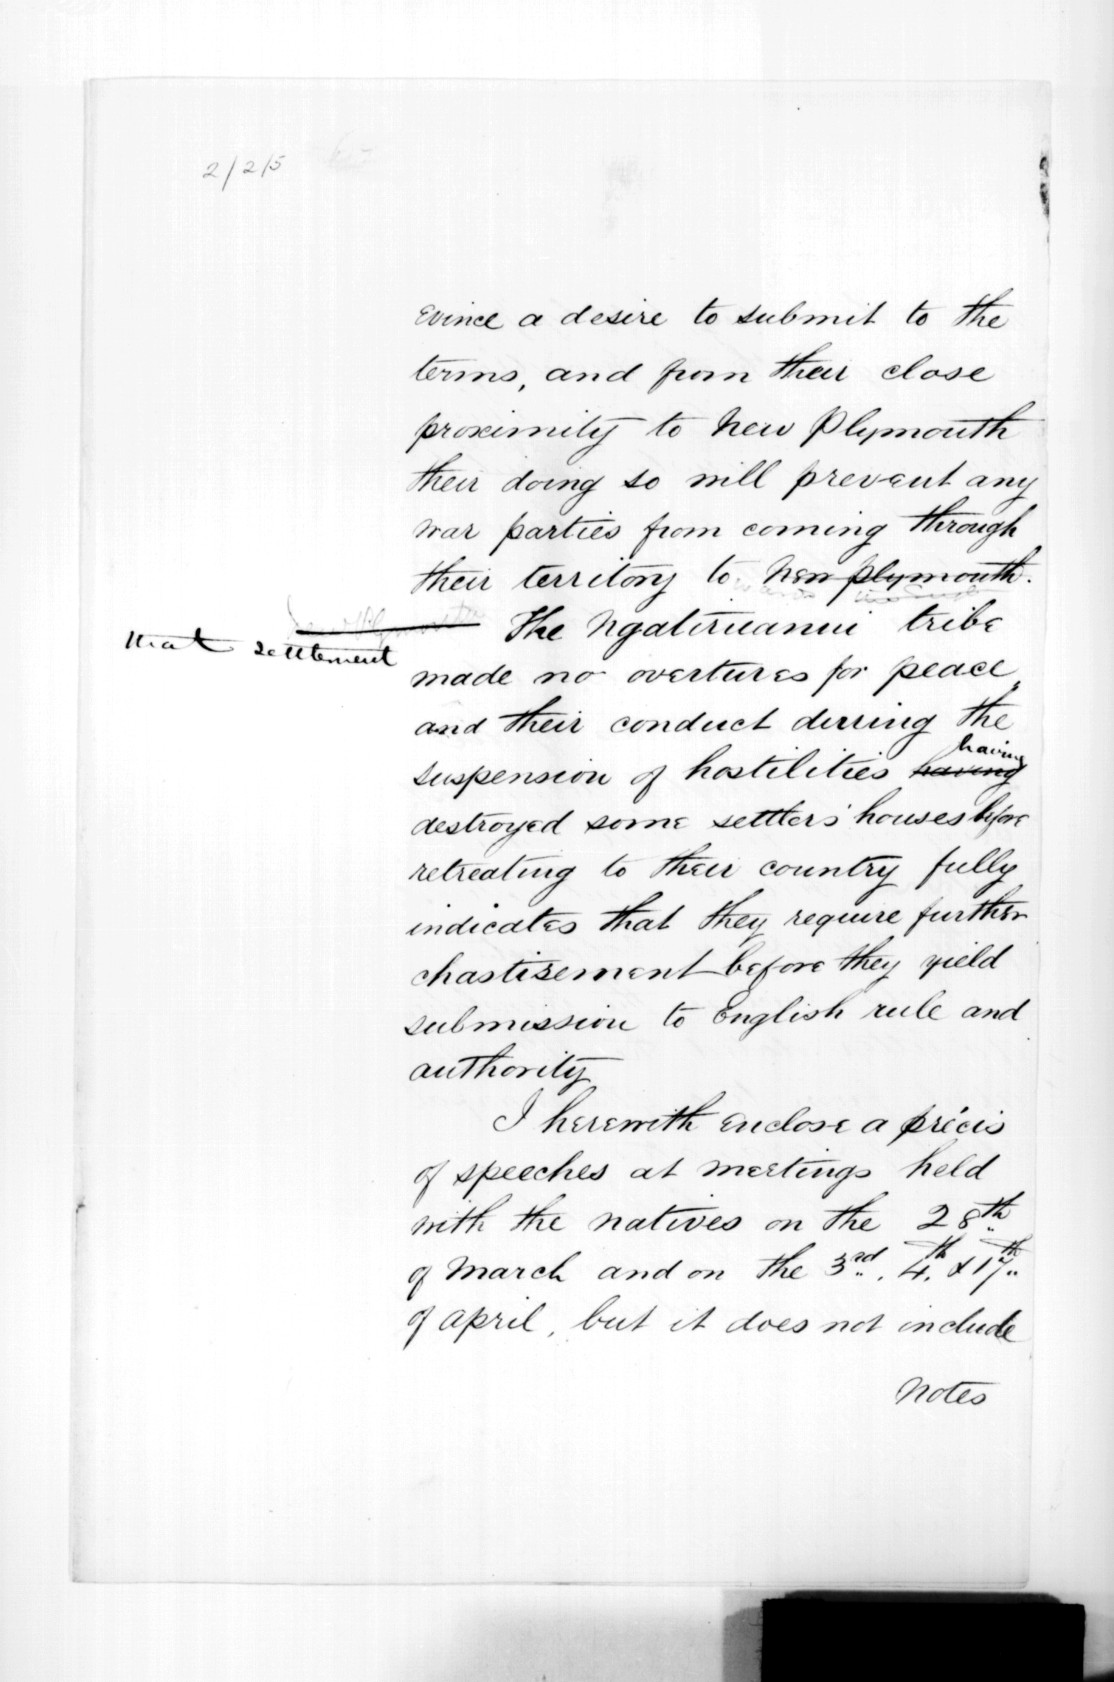 2/2/5
evince a desire to submit to the
terms, and from their close
proximity to New Plymouth
their doing so will prevent any
war parties from coming through
their territory to New Plymouth.
that settlement
The Ngatiruanui tribe
made no overtures for peace,
and their conduct durring the
having
suspension of hostilities having
destroyed some settlers' houses before
retreating to their country fully
indicates that they require further
chastisement before they yield
submission to English rule and
authority
I herewith enclose a précis
of speeches at meetings held
with the natives on the 28th
of March and on the 3rd, 4th, & 17th
of April, but it does not include
Notes